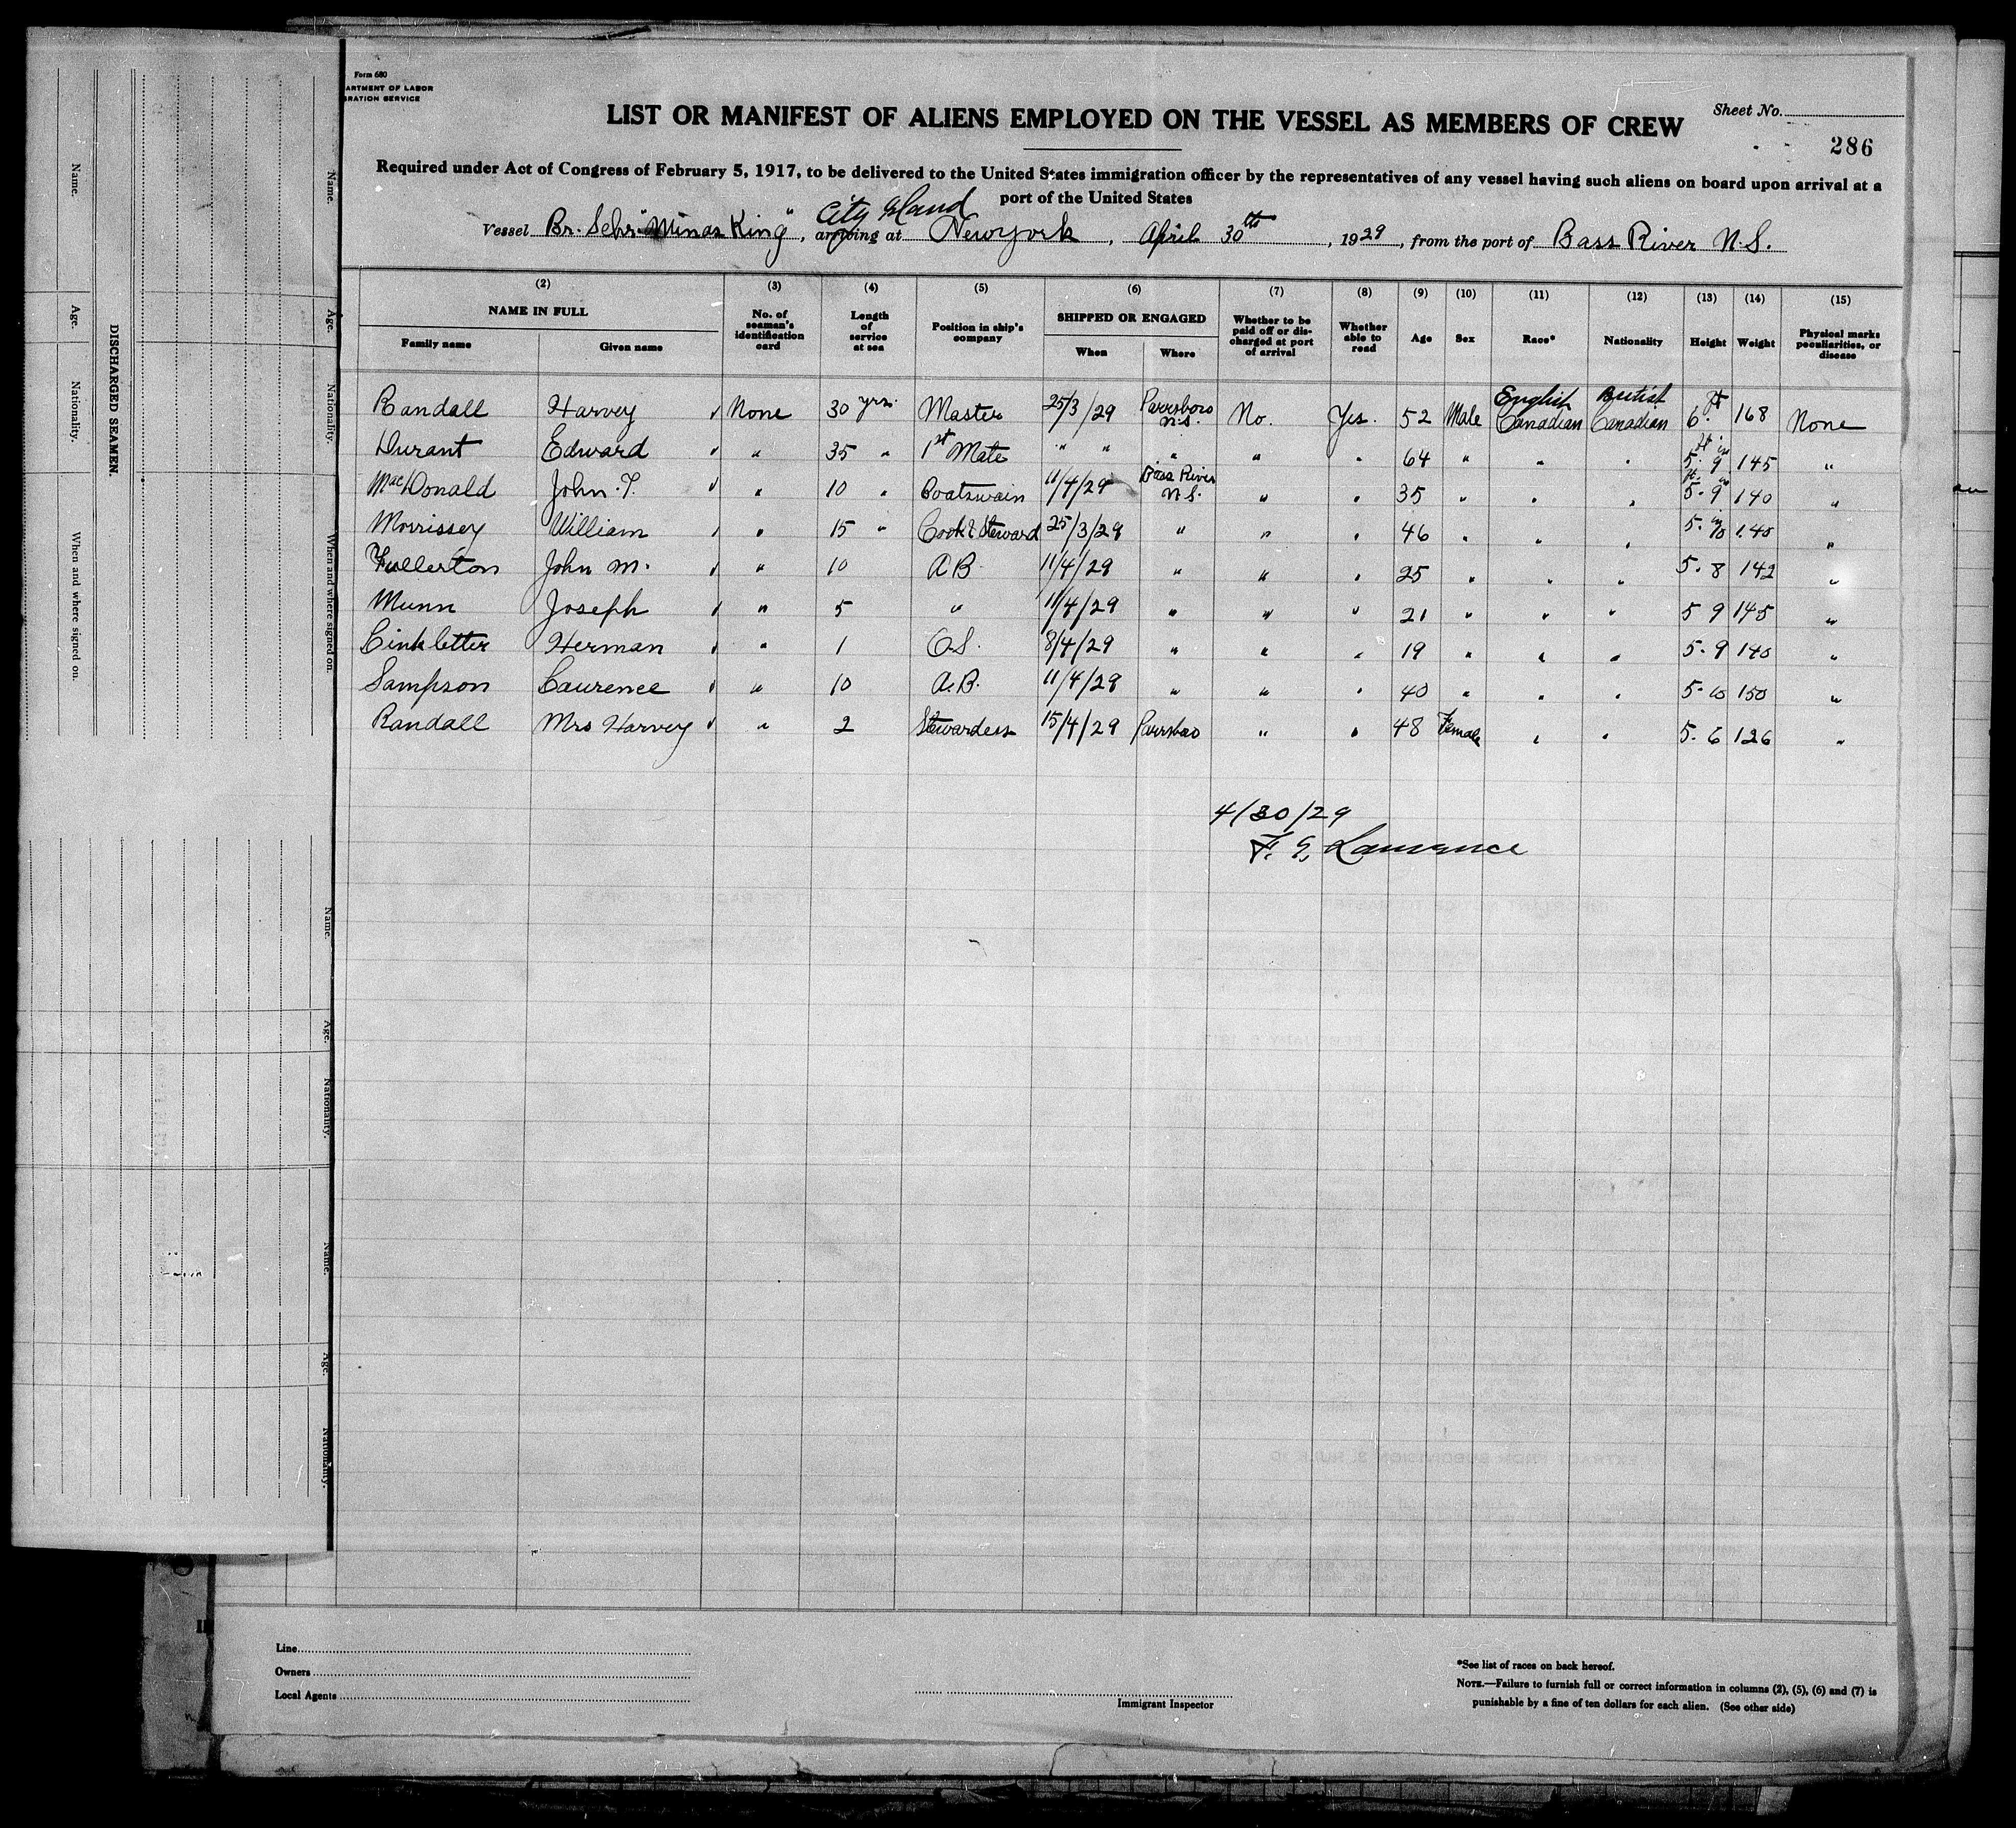 Form 680
ARTMENT OF LABOR
RATION SERVICE
LIST OR MANIFEST OF ALIENS EMPLOYED ON THE VESSEL AS MEMBERS OF CREW
Sheet No.
286
Required under Act of Congress of February 5, 1917, to be delivered to the United States immigration officer by the representatives of any vessel having such aliens on board upon arrival at a
port of the United States
City Island
Vessel Br. Schr "Minas King", arriving at New York, April 30th, 1929, from the port of Bass River N.S.
(2) (3) (4) (5) (6) (7) (8) (9) (10) (11) (12) (13) (14) (15)
NAME IN FULL
Family name Given name
No. of seaman's identification card
Length of service at sea
Position in ship's company
SHIPPED OR ENGAGED
When Where
Whether to be paid off or discharged at port of arrival
Whether able to read
Age Sex Race* Nationality Height Weight
Physical marks peculiarities, or disease
Randall Harvey None 30 yrs. Master 25/3/29 Parrsboro N.S. No. Yes. 52 Male English Canadian British Canadian 6. ft 168 None
Durant Edward " 35 " 1st Mate " " " " " 64 " " " 5. ft 9 in 145 "
MacDonald John. T. " 10 " Boatswain 11/4/29 Bass River N.S. " " 35 " " " 5. ft 9 in 140 "
Morrissey William " 15 " Cook & Steward 25/3/29 " " " 46 " " " 5. in 10 140 "
Fullerton John M. " 10 A.B. 11/4/29 " " " 25 " " " 5. 8 142 "
Munn Joseph " 5 " 11/4/29 " " " 21 " " " 5 9 145 "
Linkletter Herman " 1 O.S. 8/4/29 " " " 19 " " " 5. 9 140 "
Sampson Laurence " 10 A.B. 11/4/29 " " " 40 " " " 5. 10 150 "
Randall Mrs Harvey " 2 Stewardess 15/4/29 Parrsboro " " 48 Female " " 5. 6 126 "
4/30/29
F. E. Lawrence
Line
Owners
Local Agents
Immigrant Inspector
*See list of races on back hereof.
NOTE.—Failure to furnish full or correct information in columns (2), (5), (6) and (7) is
punishable by a fine of ten dollars for each alien. (See other side)
DISCHARGED SEAMEN.
Name.
Age.
Nationality.
When and where signed on.
Name.
Age.
Nationality.
When and where signed on.
Name.
Age.
Nationality.
Name.
Age.
Nationality.